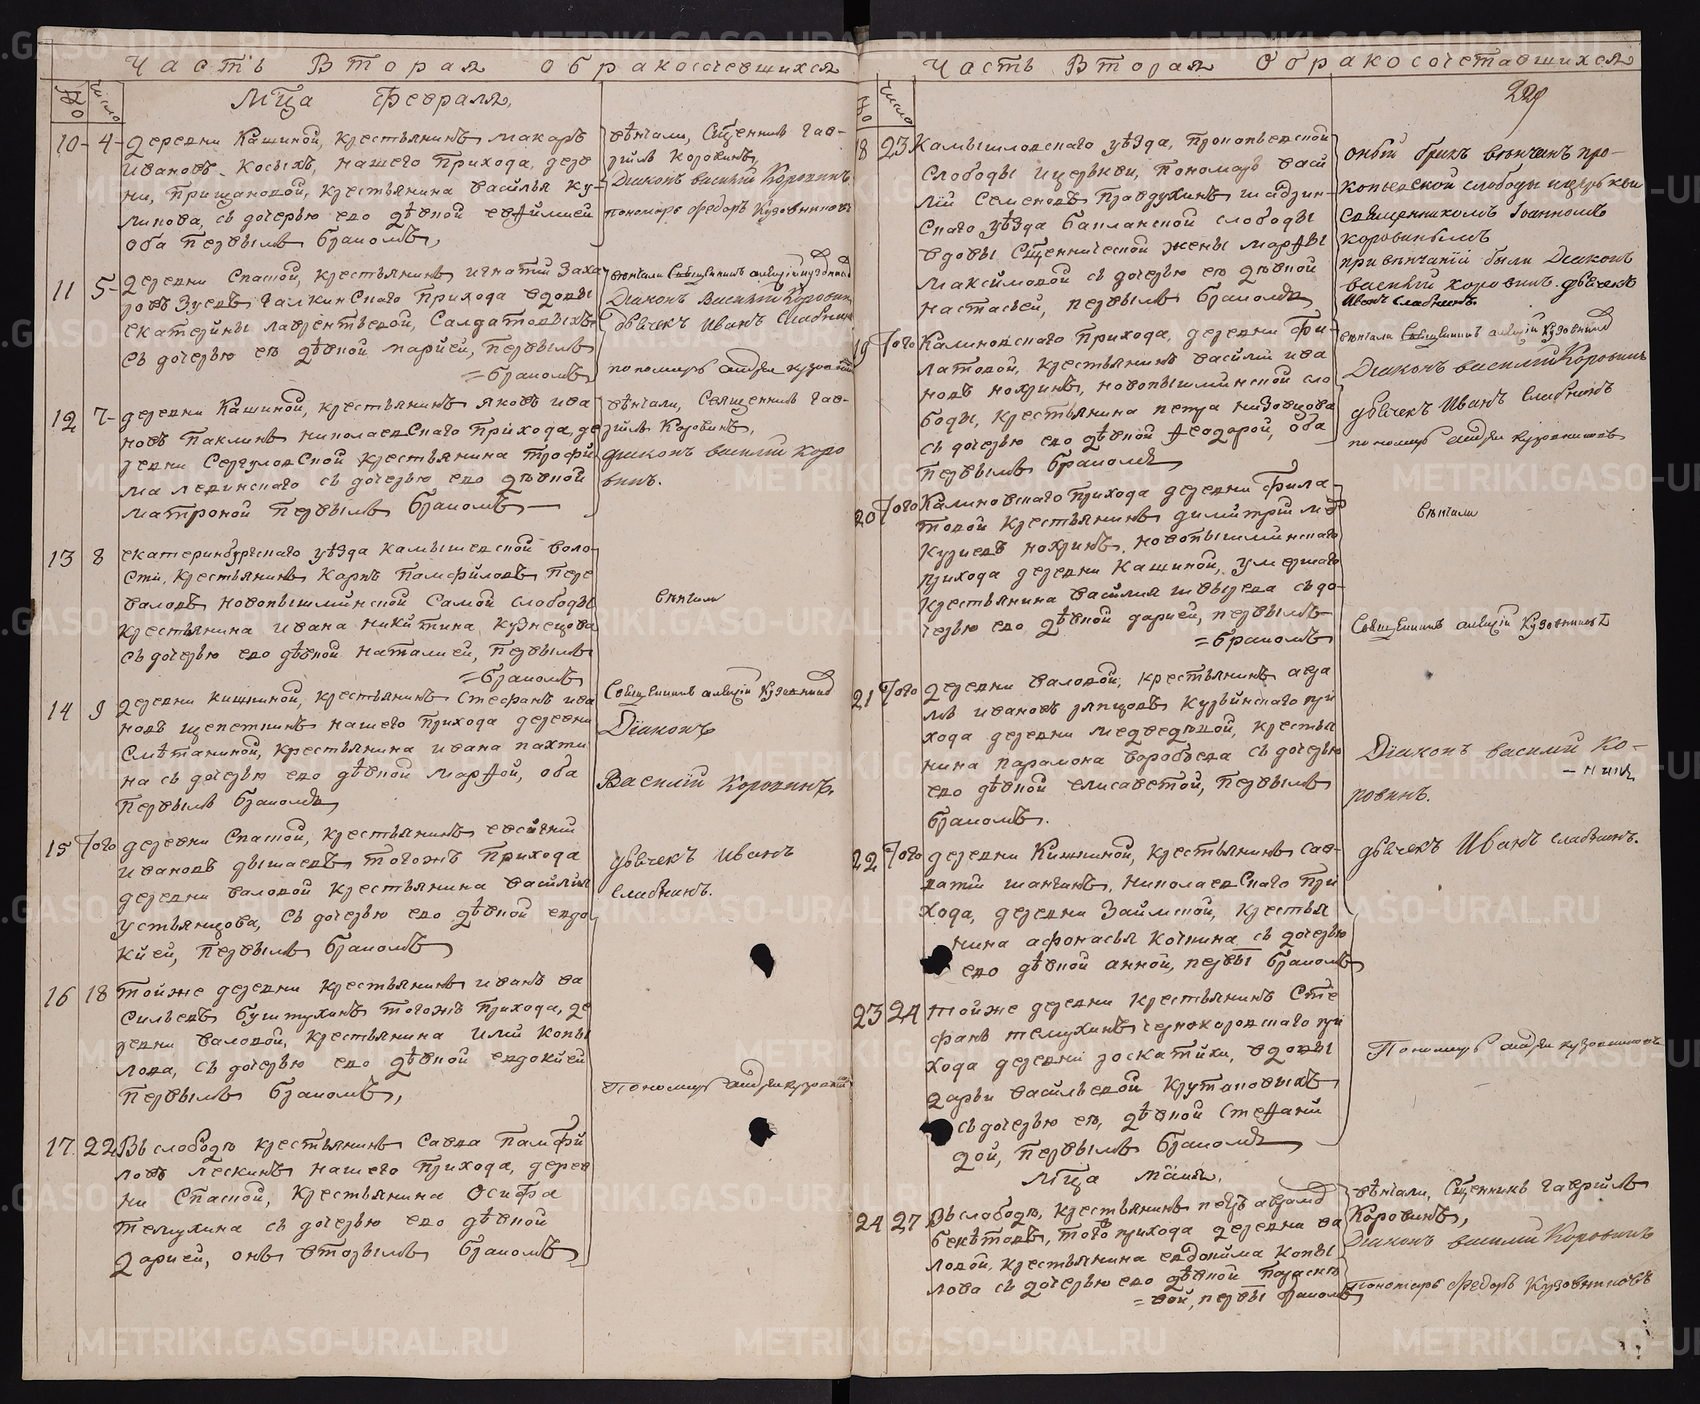 Часть Вторая о бракосочевшихся
№ число
Мца Февраля,
10 - 4 - деревни Кашиной, крестьянинъ макаръ
Ивановъ Косыхъ, нашего прихода, дерев
ни, Трищановой, крестьянина василья Ку-
ликова, съ дочерью ево дѣвкой евѳимией
оба первымъ бракомъ,
вѣнчали, Сщенникъ гав-
рiилъ Коровинъ,
Дiаконъ василий Коровинъ
пономарь федоръ Кузовниковъ
11 5 - деревни Спаской, крестьянинъ игнатiй заха
ровъ Зуевъ галкинскаго прихода вдовы
екатерины лаврентьевой, Салдатовыхъ
съ дочерью ея дѣвкой марией, первымъ
= бракомъ
вѣнчали Священникъ алексiй кузовников
Дiаконъ Василий Коровин
дьячекъ Иванъ Славнин
пономарь андрей кузовник
12 7 - деревни Кашиной, крестьянинъ яковъ ива
новъ паклинъ николаевскаго прихода, де
ревни Сергуловской крестьянина трофи
ма левинскаго съ дочерью ево дѣвкой
матроной первымъ бракомъ —
вѣнчали, Священникъ гав-
рiилъ Коровинъ,
дiаконъ василий Коро
винъ.
13 8 екатеринбургскаго уѣзда камышевской воло
сти, крестьянинъ Карпъ Памфиловъ пере
валовъ новопышминской самой слободы
крестьянина ивана никитина кузнецова
съ дочерью ево дѣвкой наталией, первымъ
= бракомъ
вѣнчали
14 9 деревни кишкиной, крестьянинъ стефанъ ива
новъ щепеткинъ нашего прихода деревни
Смѣтаниной, крестьянина ивана пахти
на съ дочерью ево дѣвкой марѳой, оба
первымъ бракомъ
Священникъ алексiй Кузовников
Дiаконъ
Василий Коровинъ.
15 того деревни Спаской, крестьянинъ евсигнiй
ивановъ дышаевъ тогожъ прихода
деревни валовой крестьянина василья
устьянцова, съ дочерью ево дѣвкой евдо
киеи, первымъ бракомъ
дьячекъ Иванъ
Славнинъ.
16 18 тойже деревни крестьянинъ иванъ ва
сильевъ бушмухинъ тогожъ прихода, де
ревни валовой, крестьянина Илiи Копы
лова, съ дочерью ево дѣвкой евдокией
первымъ бракомъ,
Пономарь андрей кузовник
17 22 Въ слободѣ крестьянинъ Савва Памфи
ловъ Лескинъ нашего прихода, дерев
ни Спаской, крестьянина Осифа
темухина съ дочерью ево дѣвкой
дарией, онъ вторымъ бракомъ
Часть Вторая О бракосочетавшихся
229
число
18 23 Камышловскаго уѣзда, прокопьевской
слободы ицеркви, пономарь васи
лiй Семеновъ Правдухинъ шадрин-
скаго уѣзда бакланской слободы
вдовы Сщеннической жены марѳы
максимовой съ дочерью ея дѣвкой
настасьей, первымъ бракомъ
оный бракъ вѣнчанъ про-
копьевской слободы ицеркви
священникомъ Iоанномъ
коровинымъ
при вѣнчанiи были дiаконъ
василий коровинъ. дьячекъ
Иванъ Славнинъ.
19 того Калиновскаго прихода, деревни фи-
латовой, крестьянинъ василий ива
новъ нохринъ, новопышминской сло
боды, крестьянина петра низовцова
съ дочерью ево дѣвкой ѳеодорой, оба
первымъ бракомъ
вѣнчали Священникъ алексiй Кузовников
Дiаконъ василий Коровинъ
дьячекъ Иванъ Славнинъ
пономарь андрей кузовниковъ
20 того Калиновскаго прихода деревни фила-
товой крестьянинъ димитрий мер
курьевъ нохринъ, новопышминскаго
прихода деревни Кашиной, умершаго
крестьянина василия швырева съ до-
черью ево дѣвкой дарией, первымъ
= бракомъ
вѣнчали
Священникъ алексiй Кузовниковъ
21 того деревни валовой, крестьянинъ авра
мъ ивановъ ряпцовъ Курьинскаго при
хода деревни медведевой, крестья
нина парамона воробьева съ дочерью
ево дѣвкой елисаветой, первымъ
бракомъ.
Дiаконъ василий Ко-
ровинъ.
22 того деревни Кишкиной, крестьянинъ сав-
ватiй шангинъ, николаевскаго при
хода, деревни Займской, крестья
нина афонасья кочнина съ дочерью
ево дѣвкой анной, первы бракомъ
дьячекъ Иванъ Славнинъ.
23 24 тойже деревни крестьянинъ Сте
фанъ темухинъ чернокоровскаго при
хода деревни роскатихи, вдовы
дарьи васильевой Крутаковыхъ
съ дочерью ея, дѣвкой Стефани
дой, первымъ бракомъ
Пономарь андрей кузовниковъ
Мца маiя,
24 27 Въ слободѣ, крестьянинъ петръ аврамов
бекѣтовъ, того прихода деревни ва
ловой, крестьянина евдокима копы
лова съ дочерью ево дѣвкой параске
= вой, первы бракомъ
вѣнчали, Сщенникъ гаврiилъ
Коровинъ,
Дiаконъ василий Коровинъ
Пономарь Федоръ Кузовниковъ
METRIKI.GASO-URAL.RU